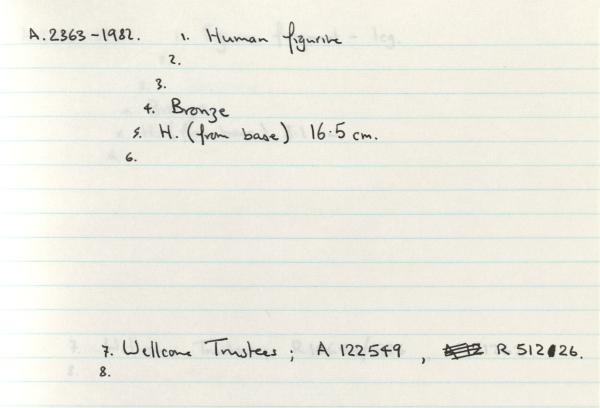 A.2363-1982. 1. Human figurine
2.
3.
4. Bronze
5. H. (from base) 16.5 cm.
6.
7. Wellcome Trustees ; A 122549 , R 512026.
8.